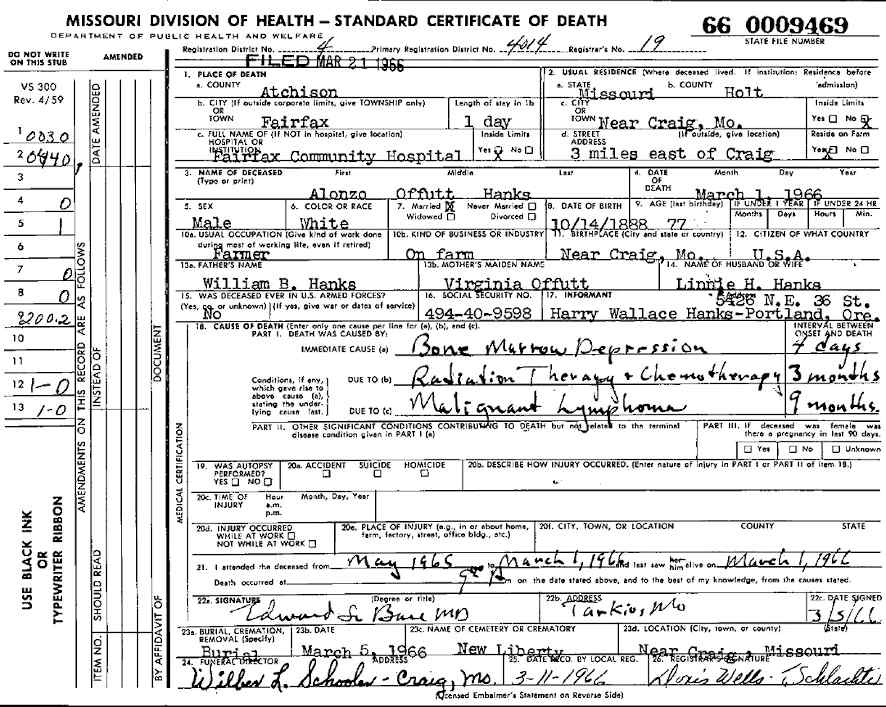 MISSOURI DIVISION OF HEALTH — STANDARD CERTIFICATE OF DEATH
DEPARTMENT OF PUBLIC HEALTH AND WELFARE
66 0009469
STATE FILE NUMBER
DO NOT WRITE ON THIS STUB
AMENDED
Registration District No. 4 Primary Registration District No. 4014 Registrar's No. 19
FILED MAR 21 1966
VS 300
Rev. 4/59
1. PLACE OF DEATH
a. COUNTY
Atchison
2. USUAL RESIDENCE (Where deceased lived. If institution: Residence before admission)
a. STATE Missouri b. COUNTY Holt
b. CITY (If outside corporate limits, give TOWNSHIP only) OR TOWN
Fairfax
Length of stay in 1b
1 day
c. CITY OR TOWN Near Craig, Mo.
Inside Limits
Yes ☐ No ☒
c. FULL NAME OF (If NOT in hospital, give location) HOSPITAL OR INSTITUTION
Fairfax Community Hospital
Inside Limits
Yes ☒ No ☐
d. STREET ADDRESS (If outside, give location)
3 miles east of Craig
Reside on Farm
Yes ☒ No ☐
3. NAME OF DECEASED (Type or print)
First Middle Last
Alonzo Offutt Hanks
4. DATE OF DEATH Month Day Year
March 1, 1966
5. SEX
Male
6. COLOR OR RACE
White
7. Married ☒ Never Married ☐
Widowed ☐ Divorced ☐
8. DATE OF BIRTH
10/14/1888
9. AGE (last birthday)
77
IF UNDER 1 YEAR
Months Days
IF UNDER 24 HR
Hours Min.
10a. USUAL OCCUPATION (Give kind of work done during most of working life, even if retired)
Farmer
10b. KIND OF BUSINESS OR INDUSTRY
On farm
11. BIRTHPLACE (City and state or country)
Near Craig, Mo.
12. CITIZEN OF WHAT COUNTRY
U.S.A.
13a. FATHER'S NAME
William B. Hanks
13b. MOTHER'S MAIDEN NAME
Virginia Offutt
14. NAME OF HUSBAND OR WIFE
Linnie H. Hanks
15. WAS DECEASED EVER IN U.S. ARMED FORCES?
(Yes, no, or unknown) (If yes, give war or dates of service)
No
16. SOCIAL SECURITY NO.
494-40-9598
17. INFORMANT
5426 N.E. 36 St.
Harry Wallace Hanks-Portland, Ore.
18. CAUSE OF DEATH (Enter only one cause per line for (a), (b), and (c).
PART I. DEATH WAS CAUSED BY:
INTERVAL BETWEEN ONSET AND DEATH
IMMEDIATE CAUSE (a) Bone Marrow Depression 4 days
Conditions, if any, which gave rise to above cause (a), stating the underlying cause last.
DUE TO (b) Radiation Therapy + Chemotherapy 3 months
DUE TO (c) Malignant Lymphoma 9 months.
PART II. OTHER SIGNIFICANT CONDITIONS CONTRIBUTING TO DEATH but not related to the terminal disease condition given in PART I (a)
PART III. If deceased was female was there a pregnancy in last 90 days.
☐ Yes ☐ No ☐ Unknown
19. WAS AUTOPSY PERFORMED?
YES ☐ NO ☐
20a. ACCIDENT SUICIDE HOMICIDE
☐ ☐ ☐
20b. DESCRIBE HOW INJURY OCCURRED. (Enter nature of injury in PART I or PART II of item 18.)
20c. TIME OF INJURY Hour a.m. p.m. Month, Day, Year
20d. INJURY OCCURRED
WHILE AT WORK ☐
NOT WHILE AT WORK ☐
20e. PLACE OF INJURY (e.g., in or about home, farm, factory, street, office bldg., etc.)
20f. CITY, TOWN, OR LOCATION COUNTY STATE
21. I attended the deceased from May 1965 to March 1, 1966 and last saw her him alive on March 1, 1966
Death occurred at m on the date stated above, and to the best of my knowledge, from the causes stated.
22a. SIGNATURE (Degree or title)
MD
22b. ADDRESS
Tarkio, Mo
22c. DATE SIGNED
3/5/66
23a. BURIAL, CREMATION, REMOVAL (Specify)
Burial
23b. DATE
March 5, 1966
23c. NAME OF CEMETERY OR CREMATORY
New Liberty
23d. LOCATION (City, town, or county) (State)
Near Craig, Missouri
24. FUNERAL DIRECTOR ADDRESS
Wilber L. Schooler - Craig, Mo.
25. DATE RECD. BY LOCAL REG.
3-11-1966
26. REGISTRAR'S SIGNATURE
Doris Wells
(Licensed Embalmer's Statement on Reverse Side)
1 0030
2 0440
3
4 0
5 1
6
7 0
8 0
9 200.2
10
11
12 1-0
13 1-0
USE BLACK INK OR TYPEWRITER RIBBON
AMENDMENTS ON THIS RECORD ARE AS FOLLOWS
DATE AMENDED
INSTEAD OF
SHOULD READ
ITEM NO.
DOCUMENT
BY AFFIDAVIT OF
MEDICAL CERTIFICATION